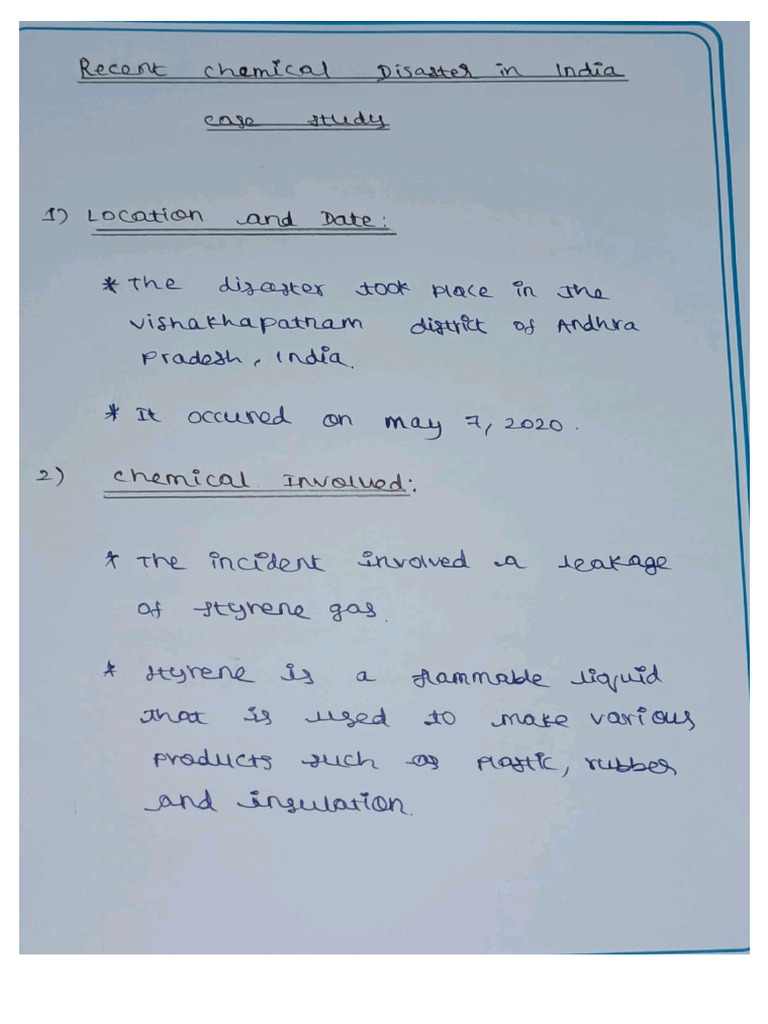 Recent chemical Disaster in India
case study
1) Location and Date:
* The disaster took place in the
vishakhapatnam district of Andhra
Pradesh, India.
* It occured on may 7, 2020.
2) chemical Involved:
* The incident involved a leakage
of styrene gas.
* styrene is a flammable liquid
that is used to make various
products such as plastic, rubber
and insulation.